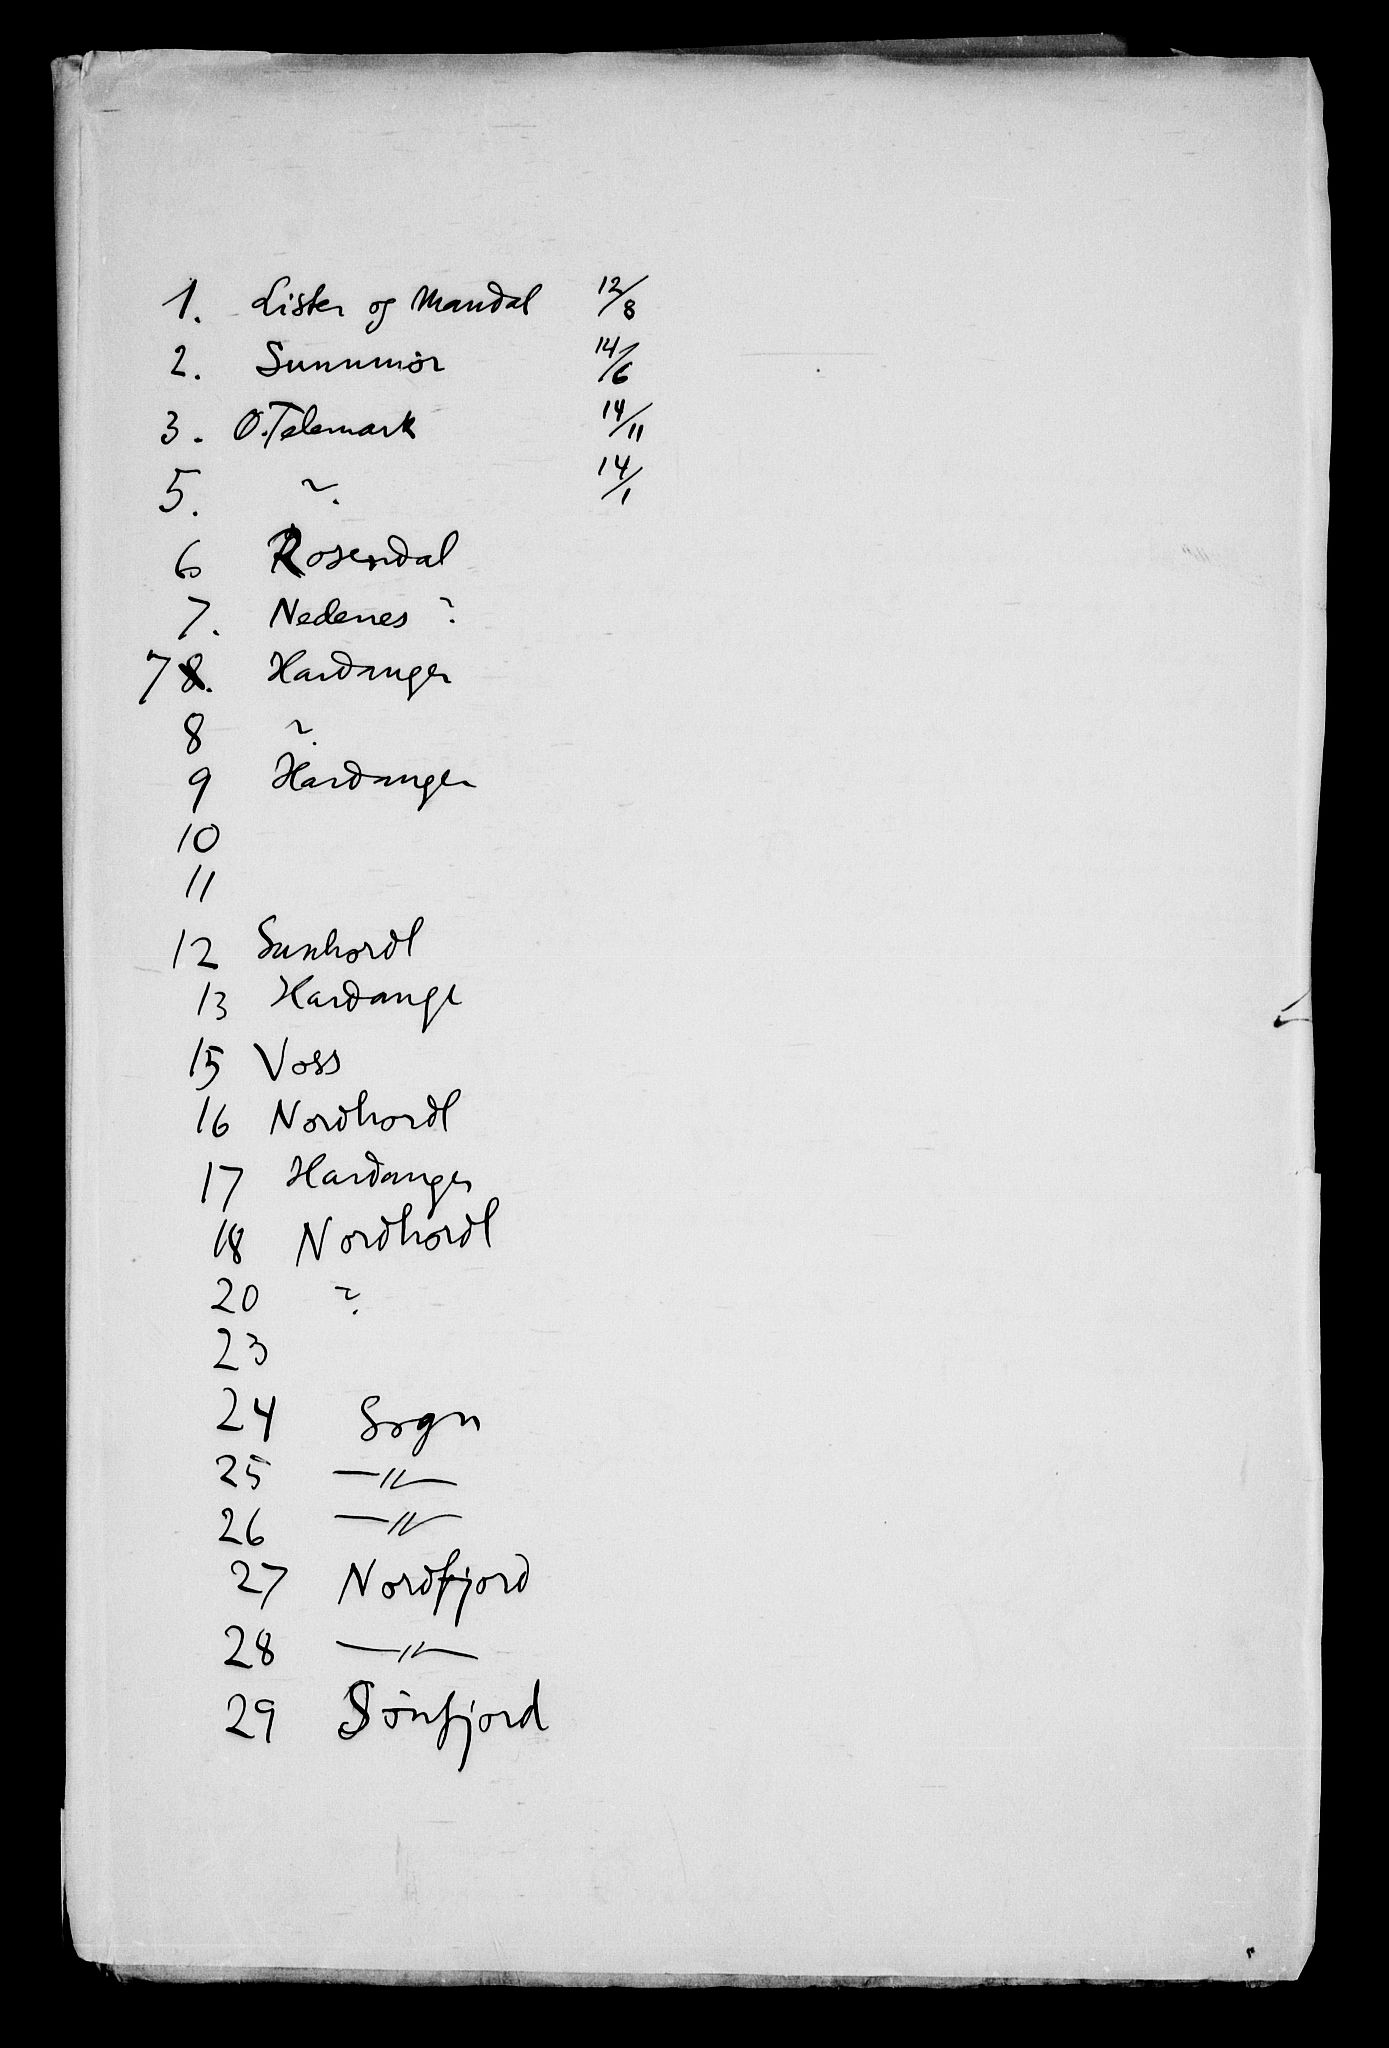 1. Lister og Mandal 12/8
2. Sunnmør 14/6
3. Ø.Telemark 14/11
5. ? 14/1
6 Rosendal
7. Nedenes ?
7 8. Hardanger
8 ?
9 Hardanger
10
11
12 Sunhordl
13 Hardange
15 Voss
16 Nordhordl
17 Hardanger
18 Nordhordl
20 ?
23
24 Sogn
25 —〃—
26 —〃—
27 Nordfjord
28 —〃—
29 Sönfjord